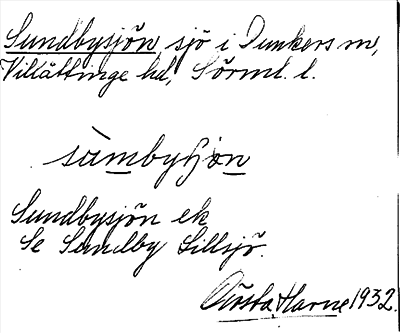 Sundbysjön, sjö i Dunkers sn,
Villåttinge hd, Sörml. l.
sàmbyʃọn
Sundbysjön ek
Se Sundby Lillsjö.
Gösta Harne 1932.